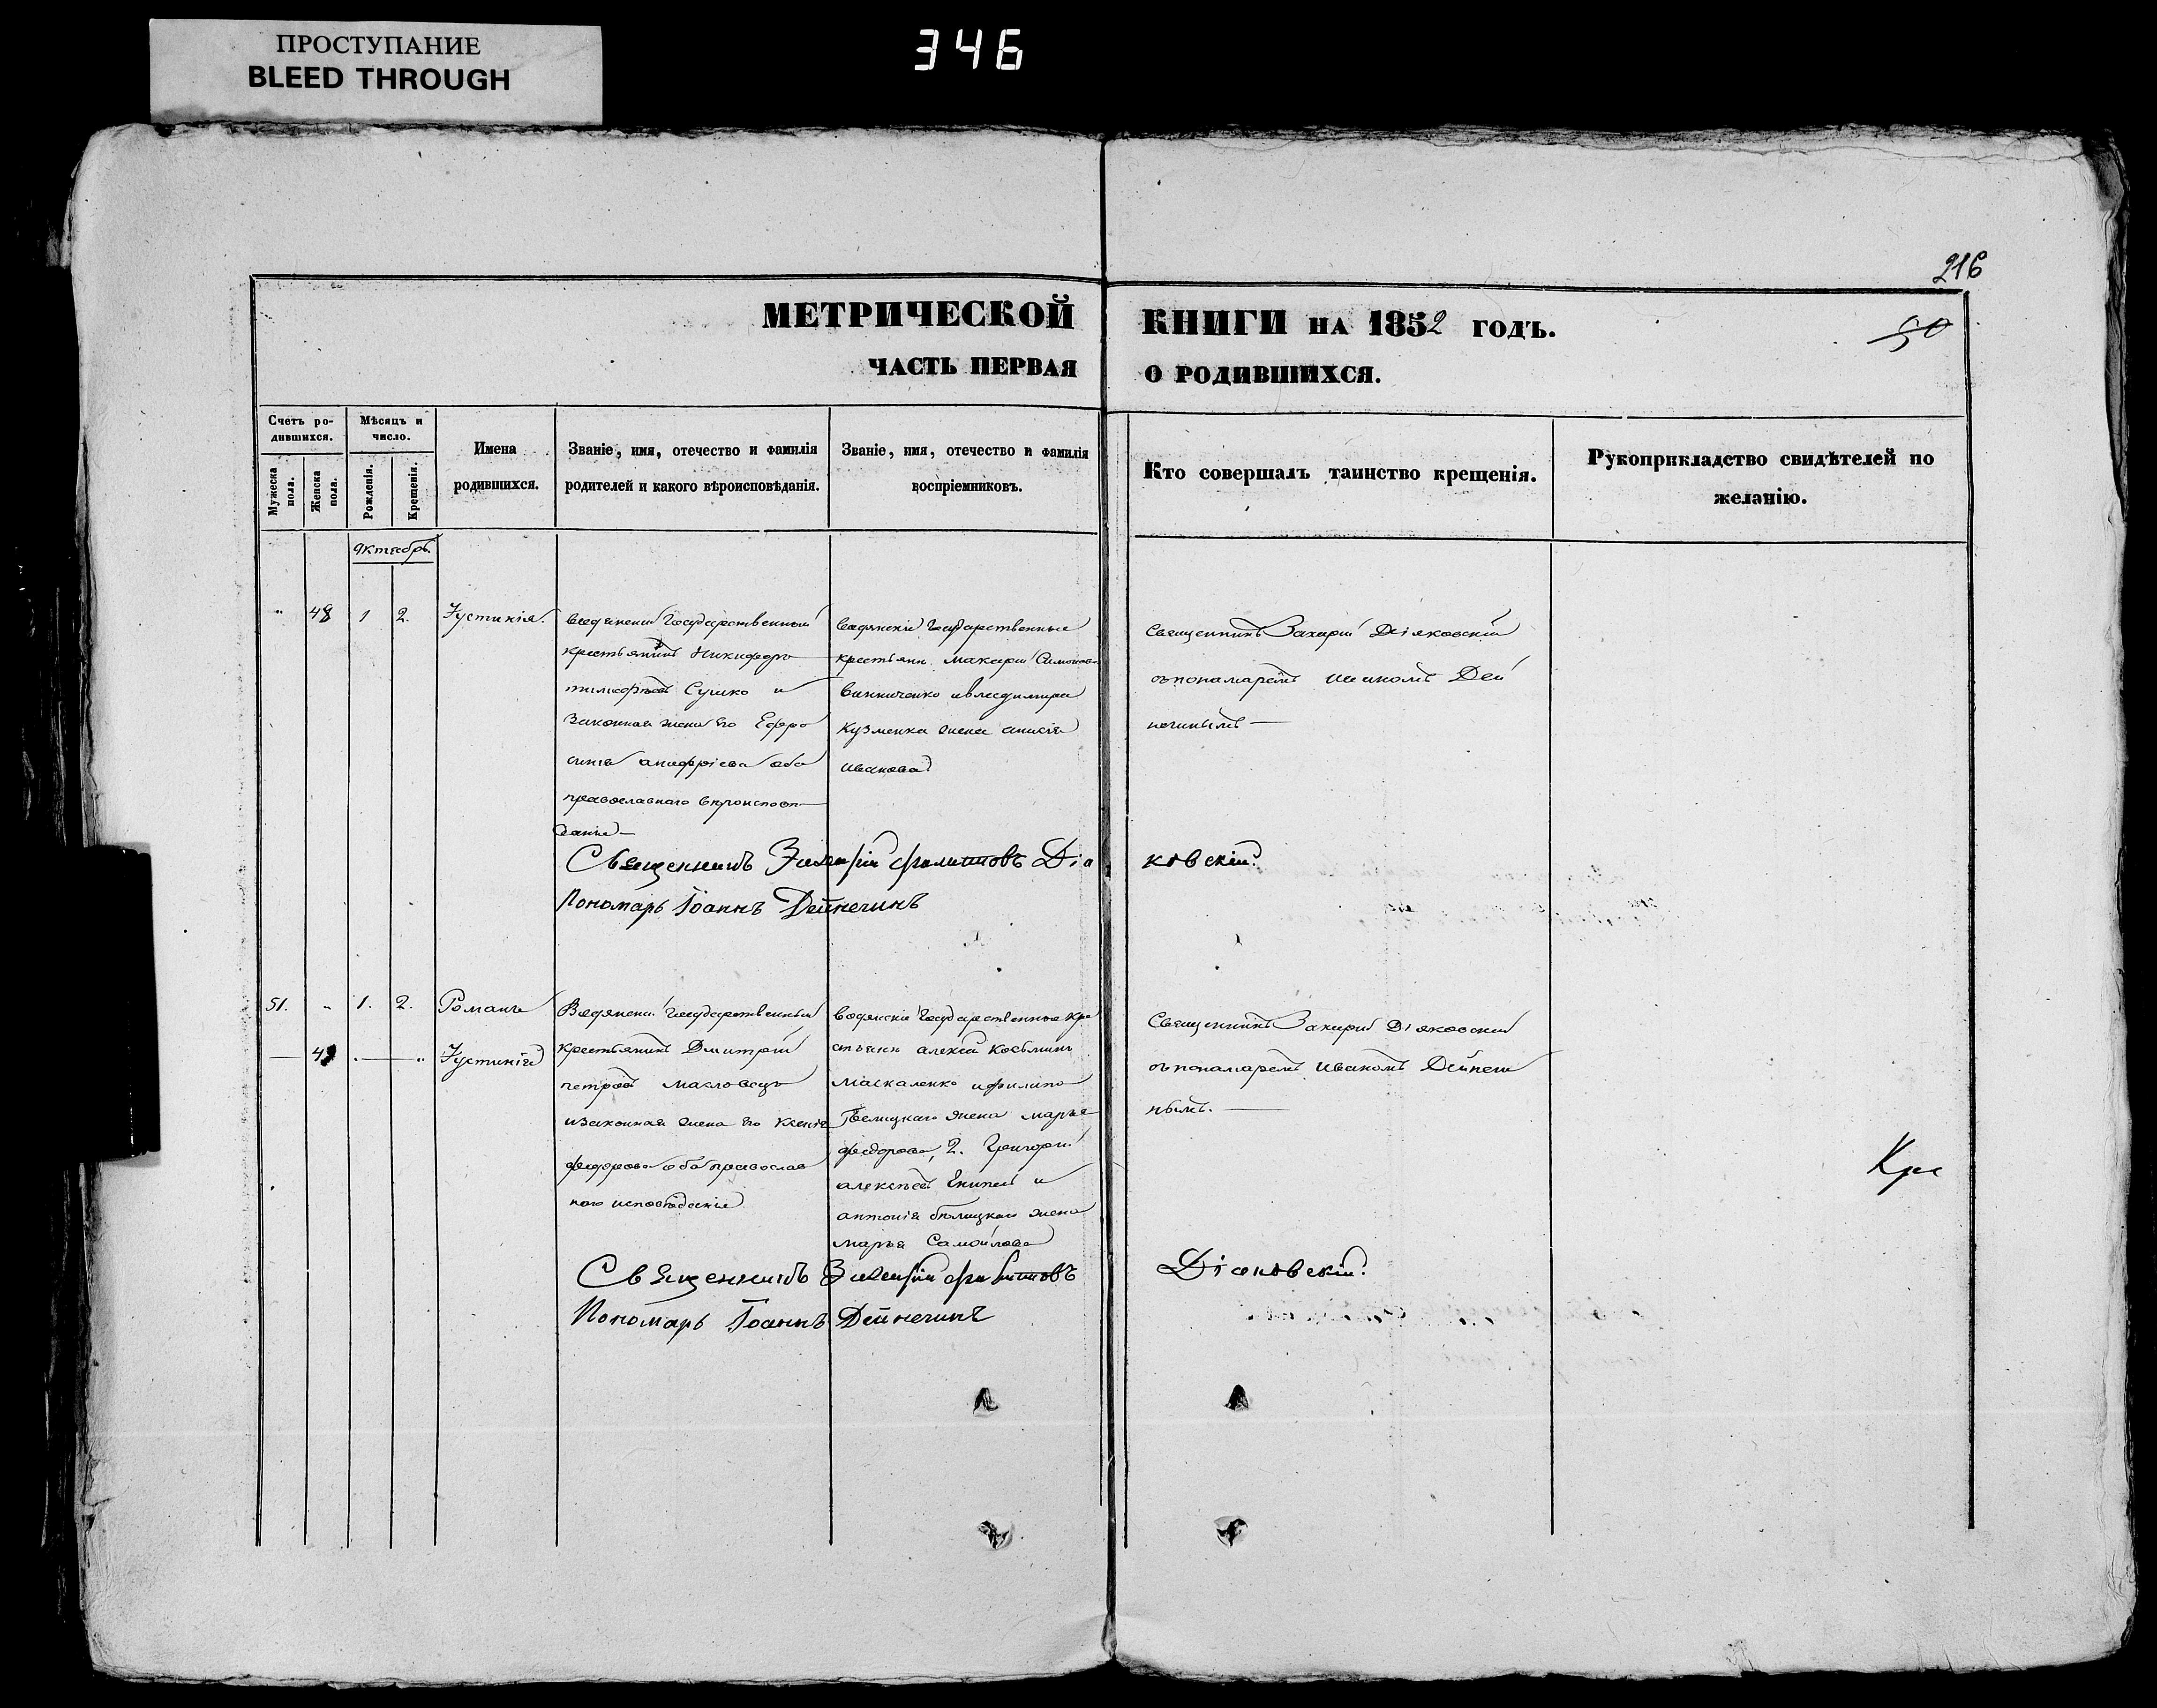 ПРОСТУПАНИЕ
BLEED THROUGH
346
216
МЕТРИЧЕСКОЙ КНИГИ НА 1852 ГОДЪ.
50
ЧАСТЬ ПЕРВАЯ О РОДИВШИХСЯ.
Счетъ ро-
дившихся.
Мужеска пола.
Женска пола.
Мѣсяцъ и
число.
Рожденія.
Крещенія.
Имена
родившихся.
Званіе, имя, отечество и фамилія
родителей и какого вѣроисповѣданія.
Званіе, имя, отечество и фамилія
воспріемниковъ.
Кто совершалъ таинство крещенія.
Рукоприкладство свидѣтелей по
желанію.
Октябрь.
" 48 1 2. Іустинія.
Государственный
крестьянинъ Никифоръ
Сушко и
законная жена его Евфро
синія оба
православнаго вѣроисповѣ-
данія
Государственные
крестьяне Макарій Симонов
Винниченко и Владимира
Кузменка жена анисія
иванова
Священникъ Захарій Діяковскій
съ пономаремъ Иваномъ Дей
нечинымъ
Священникъ Захарій Филиповъ Діаковскій.
Пономарь Іоаннъ Дейнечинъ
51. " 1. 2. Романъ
49 " Іустинія
Государственный
крестьянинъ Дмитрій
петровъ Масловецъ
и законная жена его Ксенія
федорова оба православ
наго исповѣданія
Водянскіе Государственные кре
стьяне алексѣй Косьминъ
Маскаленко и филипа
Белицкаго жена марья
федорова, 2. Григорій
алексѣевъ и
антонія бѣлицкаго жена
марья Самойлова
Священникъ Захарій Діяковскій
съ пономаремъ Иваномъ Дейнечи
нымъ.
Священникъ Захарій Филиповъ Діаковскій.
Пономарь Іоаннъ Дейнечинъ